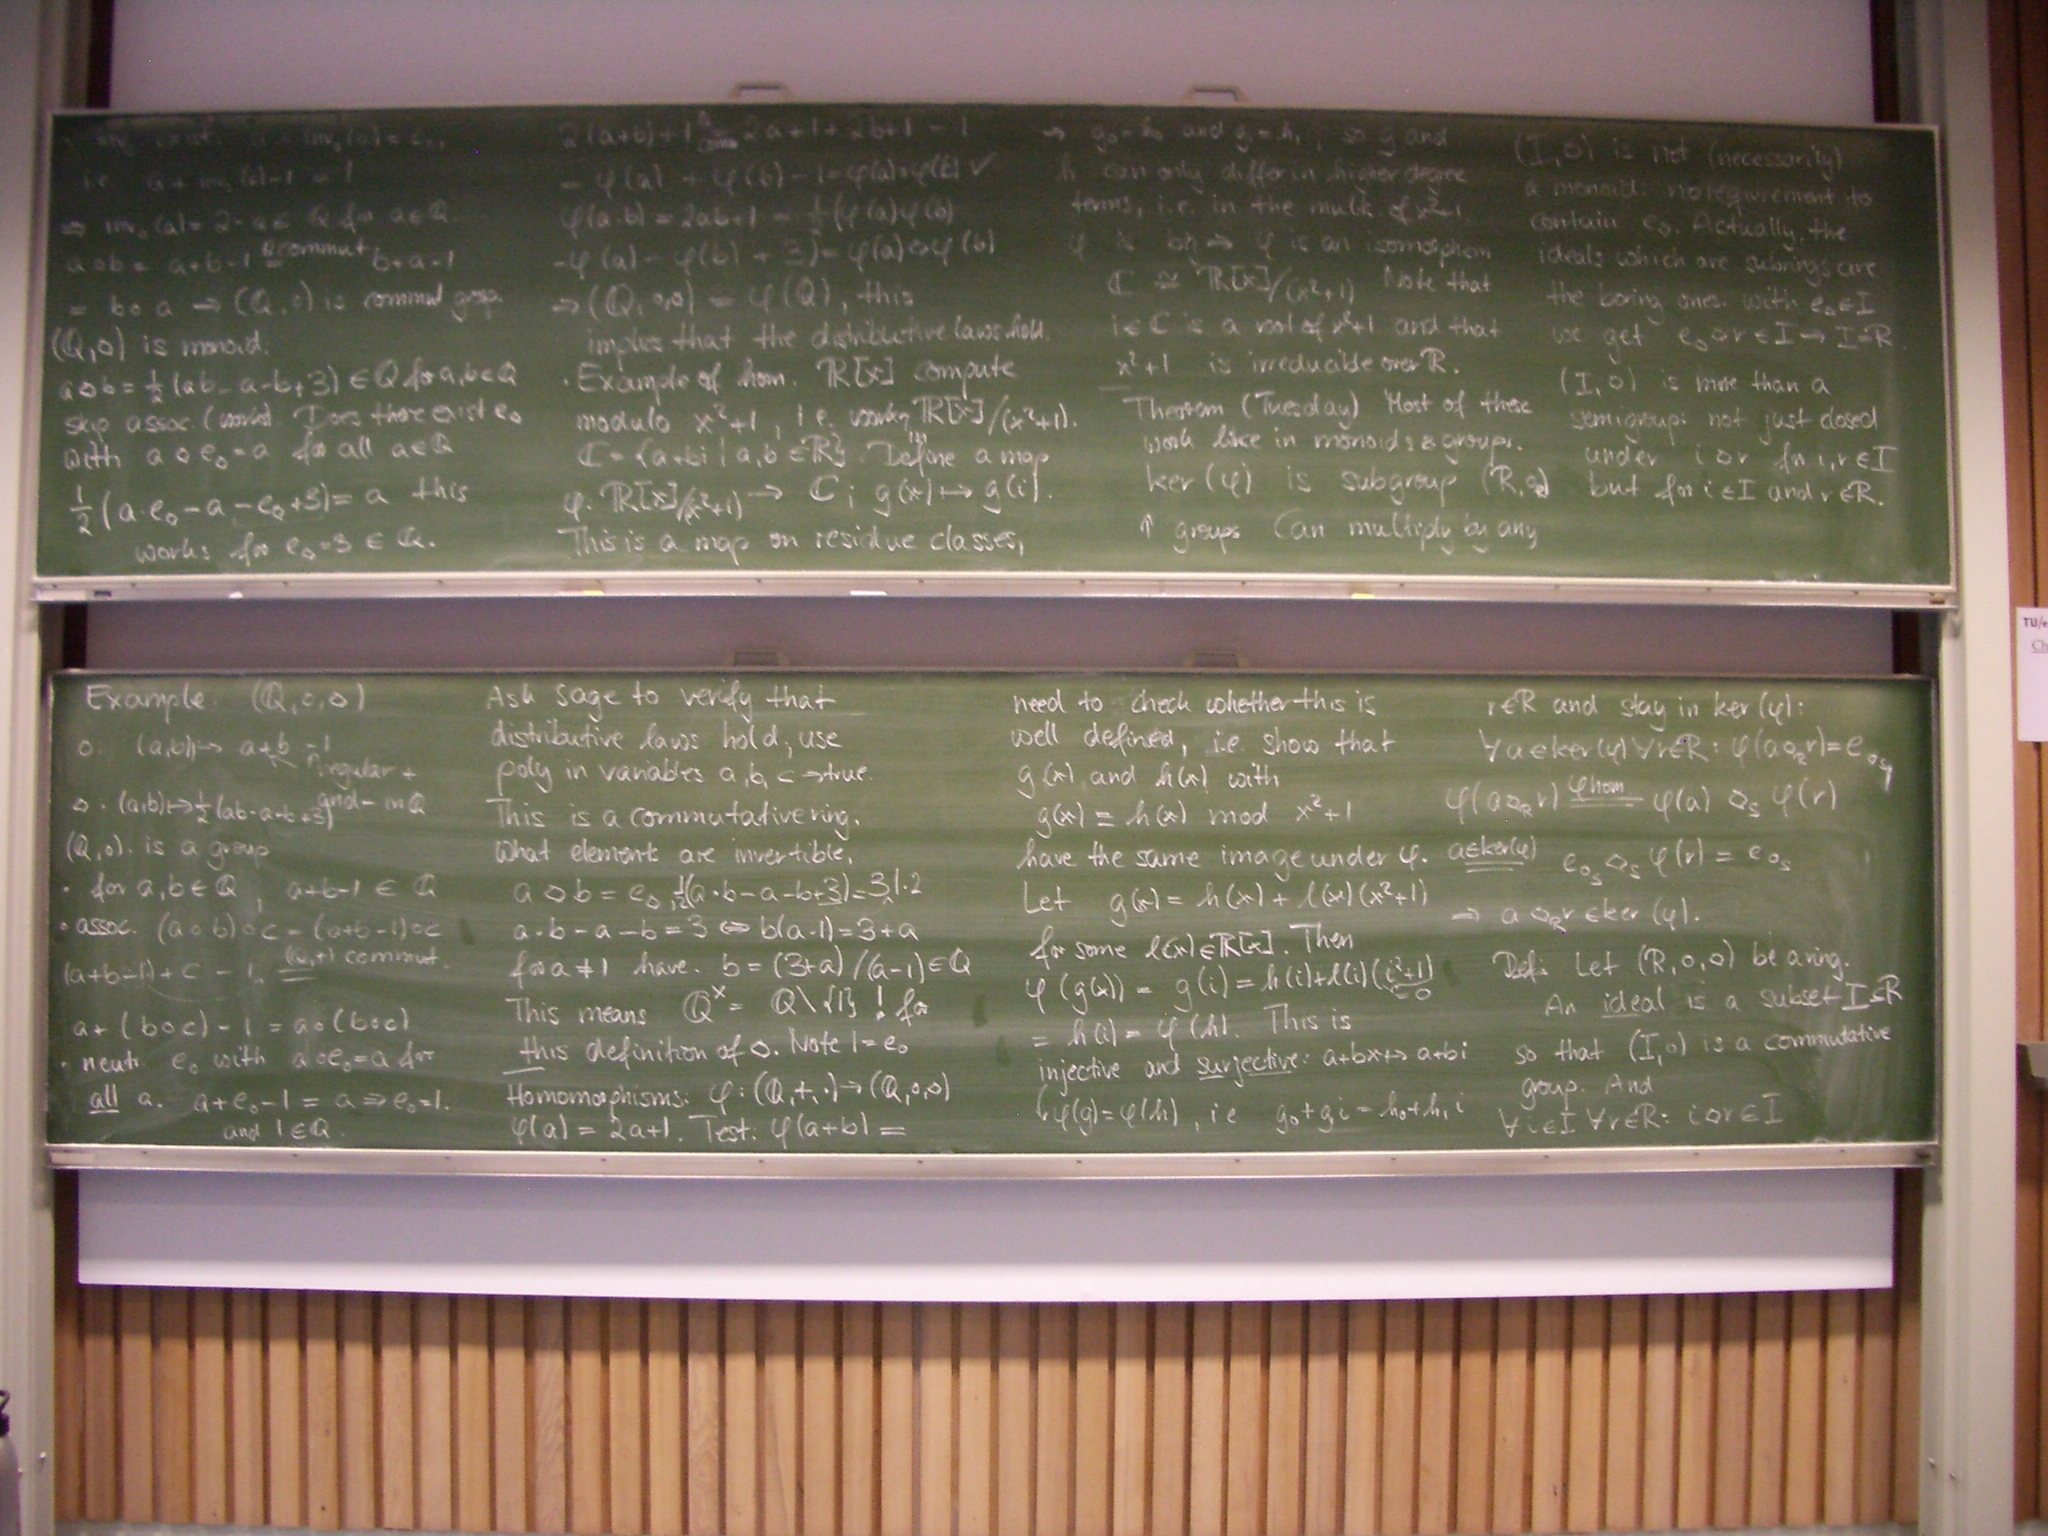 inv. exist. a ∘ inv∘(a) = e∘,
i.e. a + inv∘(a) - 1 = 1
⇒ inv∘(a) = 2 - a ∈ ℚ for a∈ℚ.
a∘b = a+b-1 =commut b+a-1
= b∘a ⇒ (ℚ,∘) is commut group.
(ℚ,◇) is monoid.
a◇b = ½(ab-a-b+3) ∈ ℚ for a,b∈ℚ
skip assoc. (works). Does there exist e◇
with a◇e◇=a for all a∈ℚ
½(a·e◇-a-e◇+3) = a this
works for e◇=3 ∈ ℚ.
2(a+b)+1 = 2a+1+2b+1-1
= φ(a) + φ(b) - 1 = φ(a)∘φ(b) ✓
φ(a·b) = 2ab+1 = ½(φ(a)φ(b)
-φ(a) - φ(b) + 3) = φ(a)◇φ(b)
⇒ (ℚ,∘,◇) = φ(ℚ), this
implies that the distributive laws hold.
· Example of hom. ℝ[x] compute
modulo x²+1, i.e. working ℝ[x]/(x²+1).
ℂ = {a+bi | a,b∈ℝ}. Define a map
φ: ℝ[x]/(x²+1) → ℂ; g(x) ↦ g(i).
This is a map on residue classes,
⇒ g₀=h₀ and g₁=h₁, so g and
h can only differ in higher degree
terms, i.e. in the mult. of x²+1.
φ is bij ⇒ φ is an isomorphism
ℂ ≅ ℝ[x]/(x²+1) Note that
i∈ℂ is a root of x²+1 and that
x²+1 is irreducible over ℝ.
Theorem (Tuesday) Most of these
work like in monoids & groups.
ker(φ) is subgroup (R,∘)
↑ groups Can multiply by any
(I,◇) is not (necessarily)
a monoid: no requirement to
contain e◇. Actually, the
ideals which are subrings are
the boring ones: with e◇∈I
we get e◇◇r∈I ⇒ I=R.
(I,◇) is more than a
semigroup: not just closed
under i◇r for i,r∈I
but for i∈I and r∈R.
Example: (ℚ,∘,◇)
∘: (a,b)↦ a+b-1
regular +
and - in ℚ
◇: (a,b)↦½(ab-a-b+3)
(ℚ,∘) is a group
· for a,b∈ℚ, a+b-1 ∈ ℚ
· assoc. (a∘b)∘c = (a+b-1)∘c
(a+b-1)+c-1 =(ℚ,+) commut.
a+(b∘c)-1 = a∘(b∘c)
· neutr. e∘ with a∘e∘=a for
all a. a+e∘-1 = a ⇒ e∘=1.
and 1∈ℚ.
Ask Sage to verify that
distributive laws hold, use
poly in variables a,b,c ⇒ true.
This is a commutative ring.
What element are invertible,
a◇b = e◇, ½(a·b-a-b+3)=3 |·2
a·b-a-b=3 ⇔ b(a-1)=3+a
for a≠1 have. b=(3+a)/(a-1)∈ℚ
This means ℚˣ = ℚ\{1} ! for
this definition of ◇. Note 1=e∘
Homomorphisms: φ:(ℚ,+,·)→(ℚ,∘,◇)
φ(a) = 2a+1. Test: φ(a+b) =
need to check whether this is
well defined, i.e. show that
g(x) and h(x) with
g(x) ≡ h(x) mod x²+1
have the same image under φ.
Let g(x) = h(x) + l(x)(x²+1)
for some l(x)∈ℝ[x]. Then
φ(g(x)) = g(i) = h(i)+l(i)(i²+1)
=0
= h(i) = φ(h). This is
injective and surjective: a+bx↦a+bi
↳ φ(g)=φ(h), i.e g₀+g₁i = h₀+h₁i
r∈R and stay in ker(φ):
∀a∈ker(φ) ∀r∈R: φ(a◇ᵣr)=e∘ₛ
φ(a◇ᵣr) =φ hom φ(a) ◇ₛ φ(r)
=a∈ker(φ) e∘ₛ ◇ₛ φ(r) = e∘ₛ
⇒ a◇ᵣr ∈ ker(φ).
Def: Let (R,∘,◇) be a ring.
An ideal is a subset I⊆R
so that (I,∘) is a commutative
group. And
∀i∈I ∀r∈R: i◇r∈I
TU/e
Ch